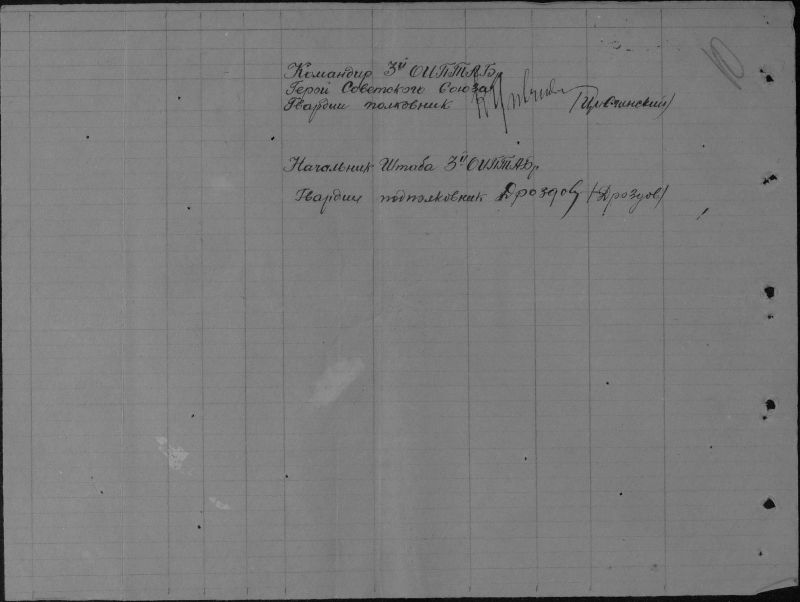 Командир 3й ОИПТАБр
Герой Советского Союза
Гвардии полковник
Начальник Штаба 3й ОИПТАБр
Гвардии подполковник Дроздов (Дроздов)
10